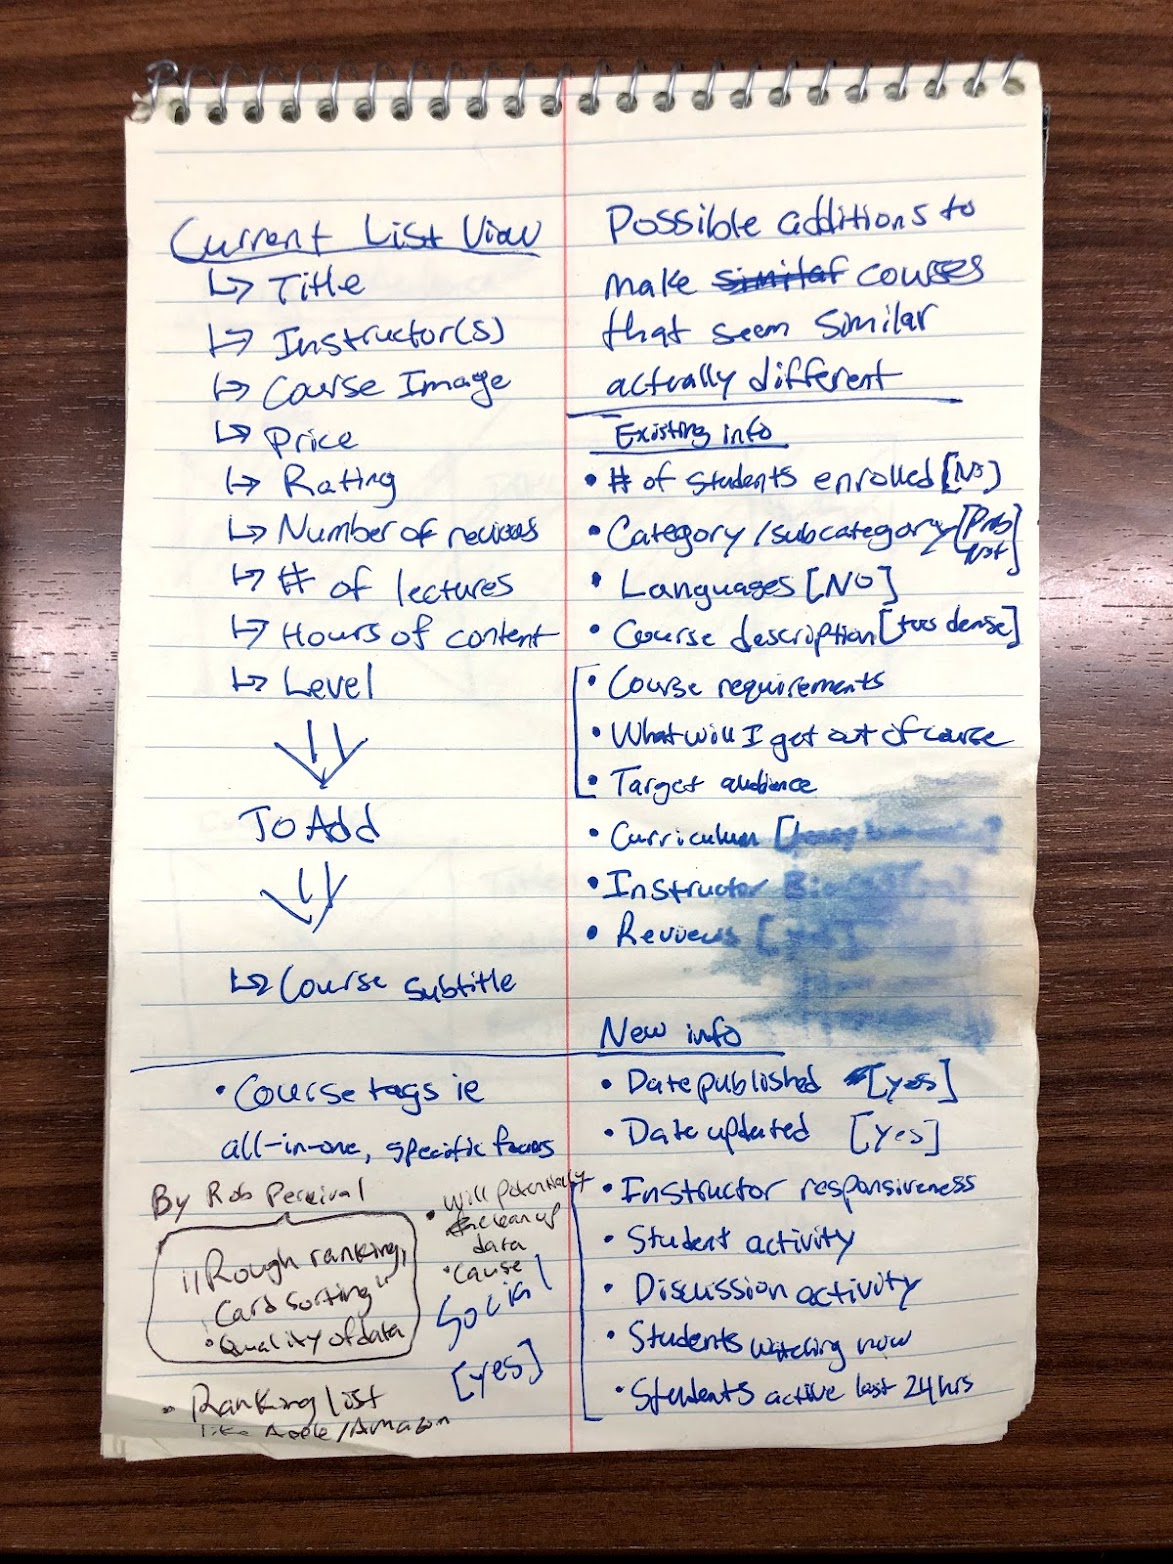 Current List View
↳ Title
↳ Instructor(s)
↳ Course Image
↳ Price
↳ Rating
↳ Number of reviews
↳ # of lectures
↳ Hours of content
↳ Level
To Add
↳ Course subtitle
• Course tags ie
all-in-one, specific focus
By Rob Percival
"Rough ranking,
Card sorting"
• Quality of data
• Ranking list
like Apple/Amazon
• Will potentially
clean up
data
• Cause
Social
[yes]
Possible additions to
make similar courses
that seem similar
actually different
Existing info
• # of students enrolled [No]
• Category/subcategory [Prob not]
• Languages [No]
• Course description [too dense]
• Course requirements
• What will I get out of course
• Target audience
• Curriculum
• Instructor
• Reviews
New info
• Date published [yes]
• Date updated [yes]
• Instructor responsiveness
• Student activity
• Discussion activity
• Students watching now
• Students active last 24hrs